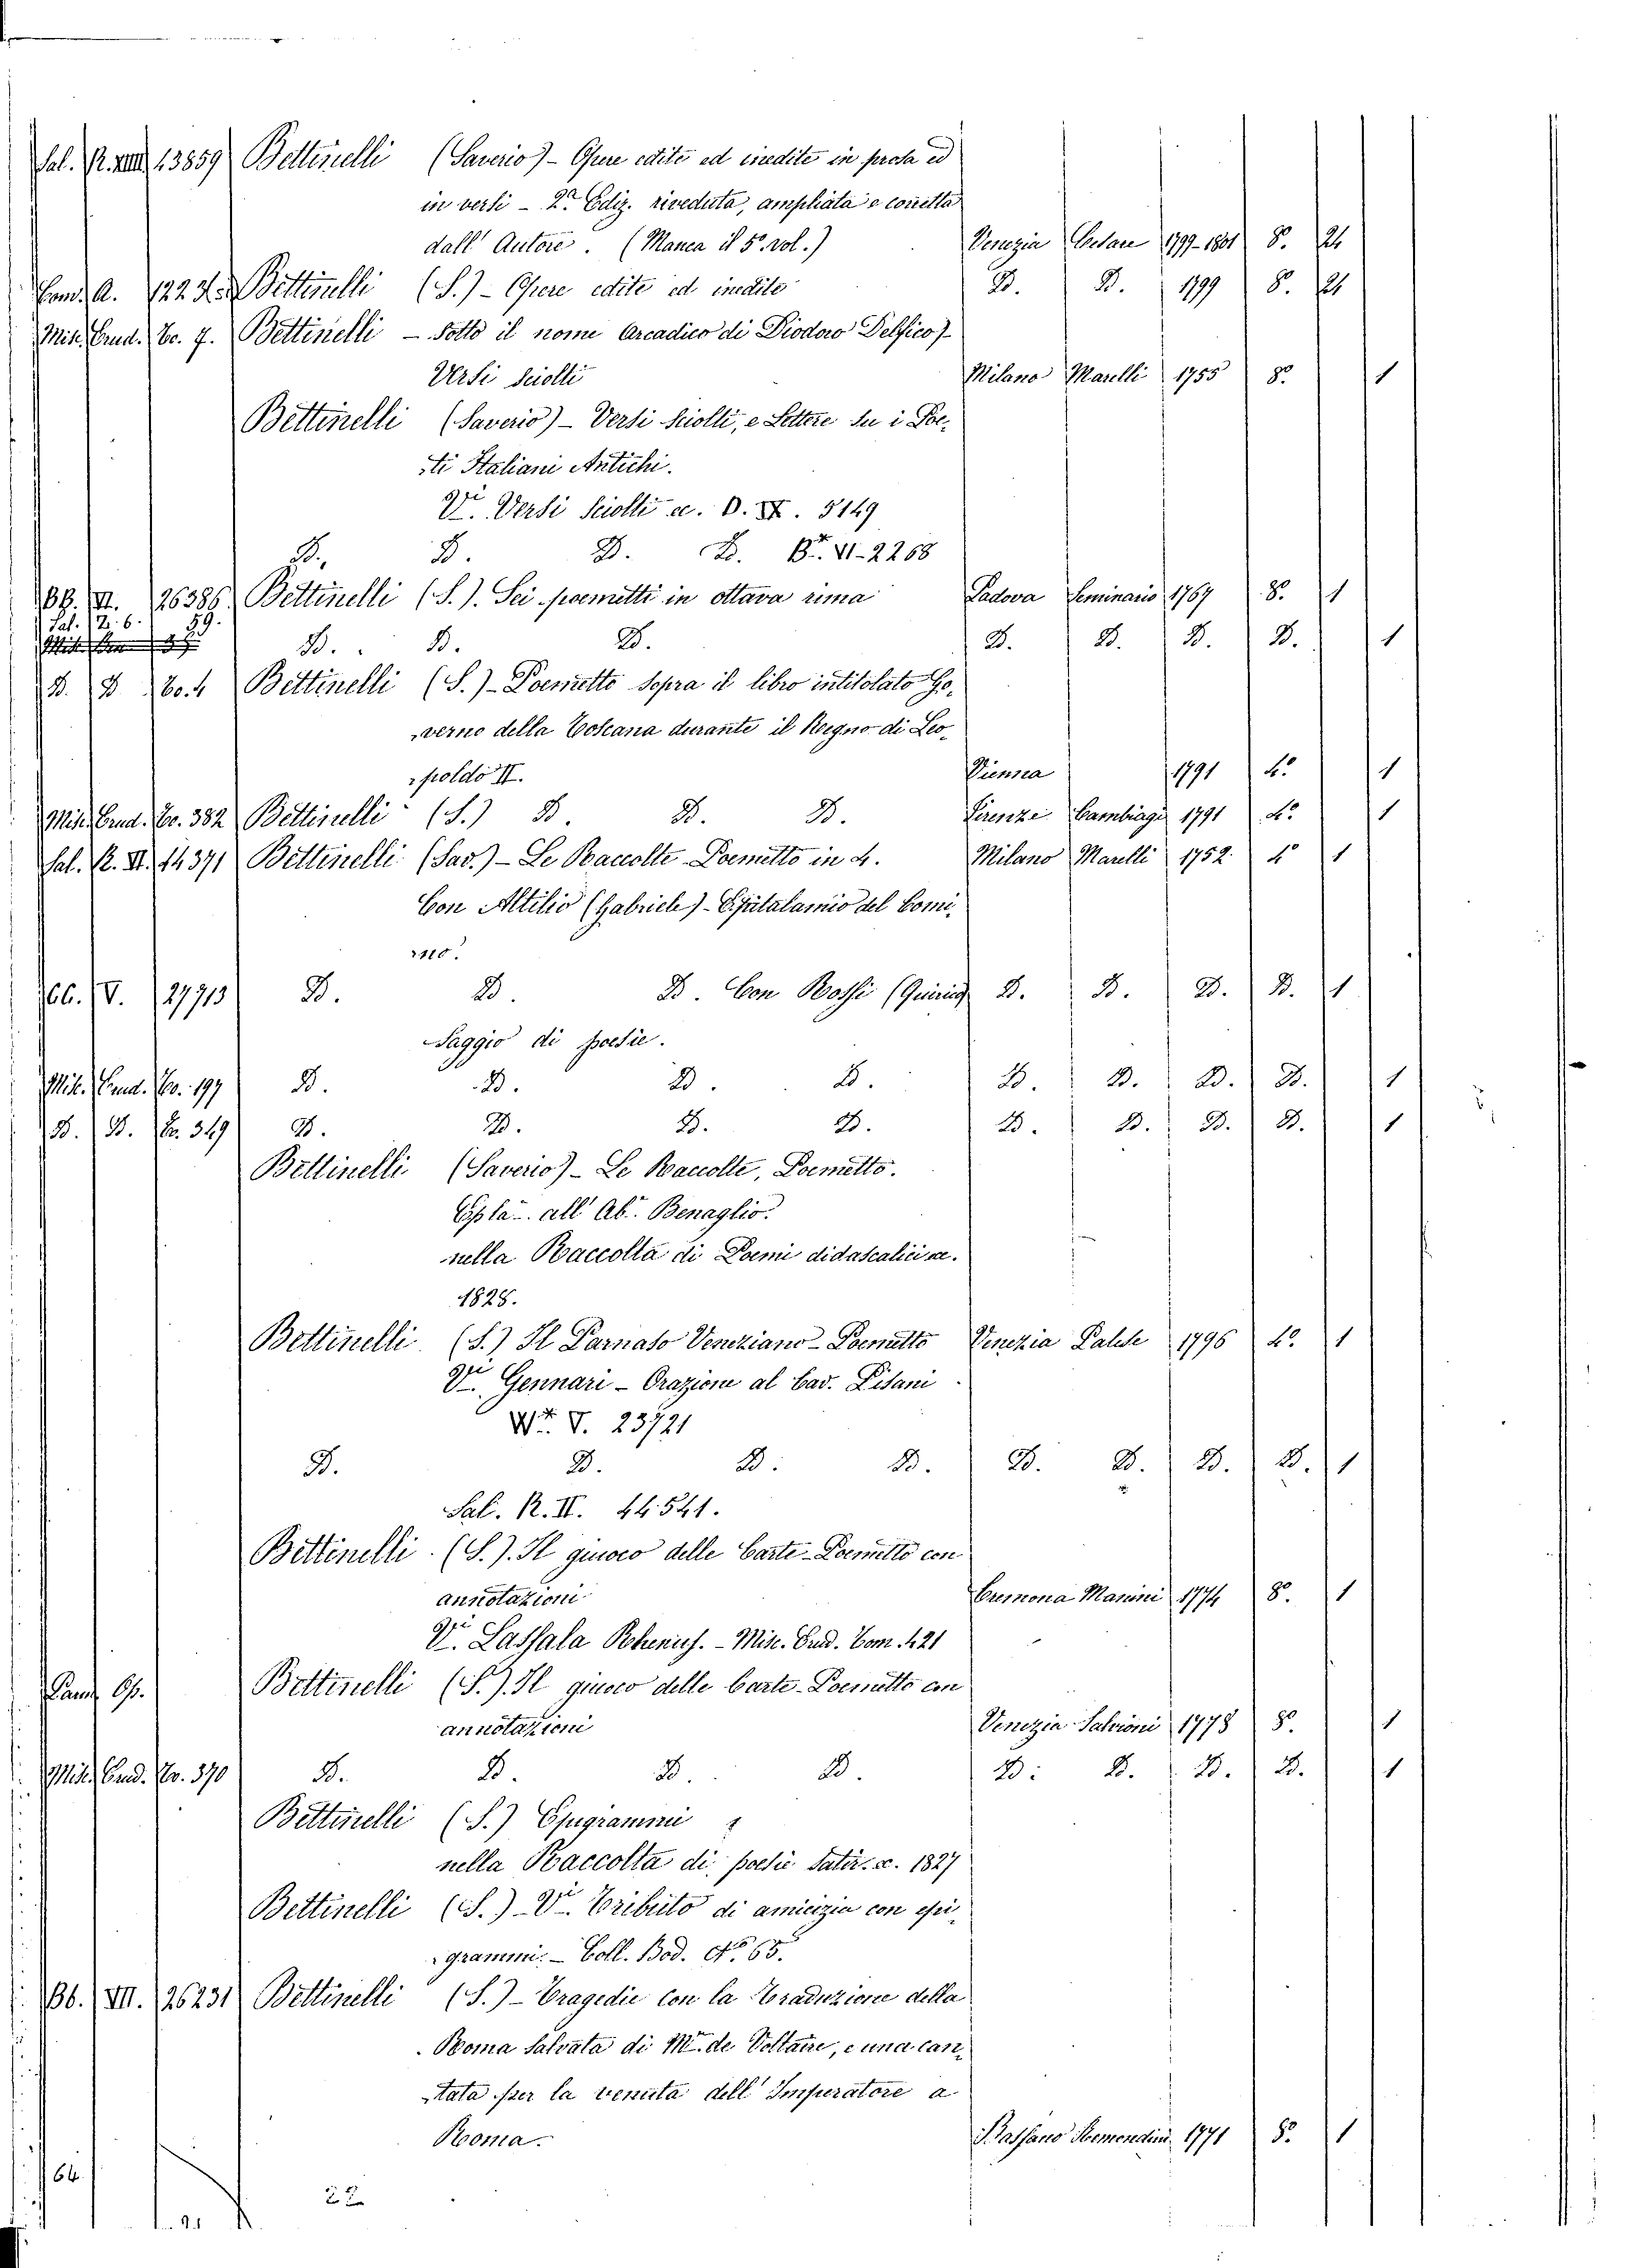 Sal. R. XIII 13859 Bettinelli (Saverio) - Opere edite ed inedite in prosa ed
in versi - 2.ª Ediz. riveduta, ampliata e corretta
dall' Autore. (Manca il 5º vol.) Venezia Cesare 1799-1801 8º 24
Com. A. 122 Bettinelli (S.) - Opere edite ed inedite D. D. 1799 8º 24
Mis. Erud. To. 7. Bettinelli - Sotto il nome Arcadico di Diodoro Delfico)
Versi sciolti Milano Marelli 1755 8º 1
Bettinelli (Saverio) - Versi Sciolti, e Lettere su i Poe-
ti Italiani Antichi.
Vi. Versi Sciolti ec. O. IX. 5149
D. D. D. D. Br. VI-2268
BB. VI. 26386 Bettinelli (S.). Sei poemetti in ottava rima Padova Seminario 1767 8º 1
Sal. Z. 6. 59.
D. D. D. D. D. D. D. 1
D. D To. 4 Bettinelli (S.) - Poemetto sopra il libro intitolato Go-
verno della Toscana durante il Regno di Leo-
poldo II. Vienna 1791 4º 1
Mis. Erud. To. 382 Bettinelli (S.) D. D. D. Firenze Cambiagi 1791 4º 1
Sal. R. II. 14371 Bettinelli (Sav.) - Le Raccolte Poemetto in 4. Milano Marelli 1752. 4º 1
Con Altilio (Gabriele) - Epitalamio del Comi-
no.
CC. V. 27713 D. D. D. Con Rossi (Quirico) D. D. D. D. 1
Saggio di poesie.
Mis. Erud. To. 197 D. D. D. D. D. D. D. D. 1
D. D. To. 349 D. D. D. D. D. D. D. D. 1
Bettinelli (Saverio) - Le Raccolte, Poemetto.
all' Ab. Benaglio.
nella Raccolta di Poemi didascalici ec.
1828.
Bettinelli (S.) Il Parnaso Veneziano - Poemetto Venezia Palese 1796 4º 1
Vi. Gennari - Orazione al Cav. Pisani
Wr. V. 23721
D. D. D. D. D. D. D. D. 1
Sal. R. II. 44541.
Bettinelli (S.). Il giuoco delle Carte - Poemetto con
annotazioni Cremona Manini 1774 8º 1
Vi. Lassala Rhenus. - Misc. Erud. Tom. 421
Op. Bettinelli (S.). Il giuoco delle Carte - Poemetto con
annotazioni Venezia Salvioni 1778 8º 1
Mis. Erud. To. 370 D. D. D. D. D. D. D. D. 1
Bettinelli (S.) Epigrammi
nella Raccolta di poesie satir. ec. 1827
Bettinelli (S.) - Vi. Tributo di amicizia con epi-
grammi. - Coll. Bod. Nº 65.
Bb. VII. 26231 Bettinelli (S.) - Tragedie con la Traduzione della
Roma Salvata di Mr. de Voltaire, e una can-
tata per la venuta dell' Imperatore a
Roma. Bassano Remondini 1771 8º 1
64
22
21